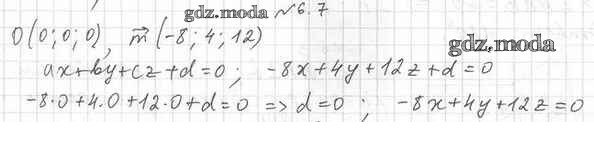 gdz.moda №6.7
O(0;0;0), m⃗(-8;4;12)
gdz.moda
ax+by+cz+d=0; -8x+4y+12z+d=0
-8·0+4·0+12·0+d=0 => d=0; -8x+4y+12z=0